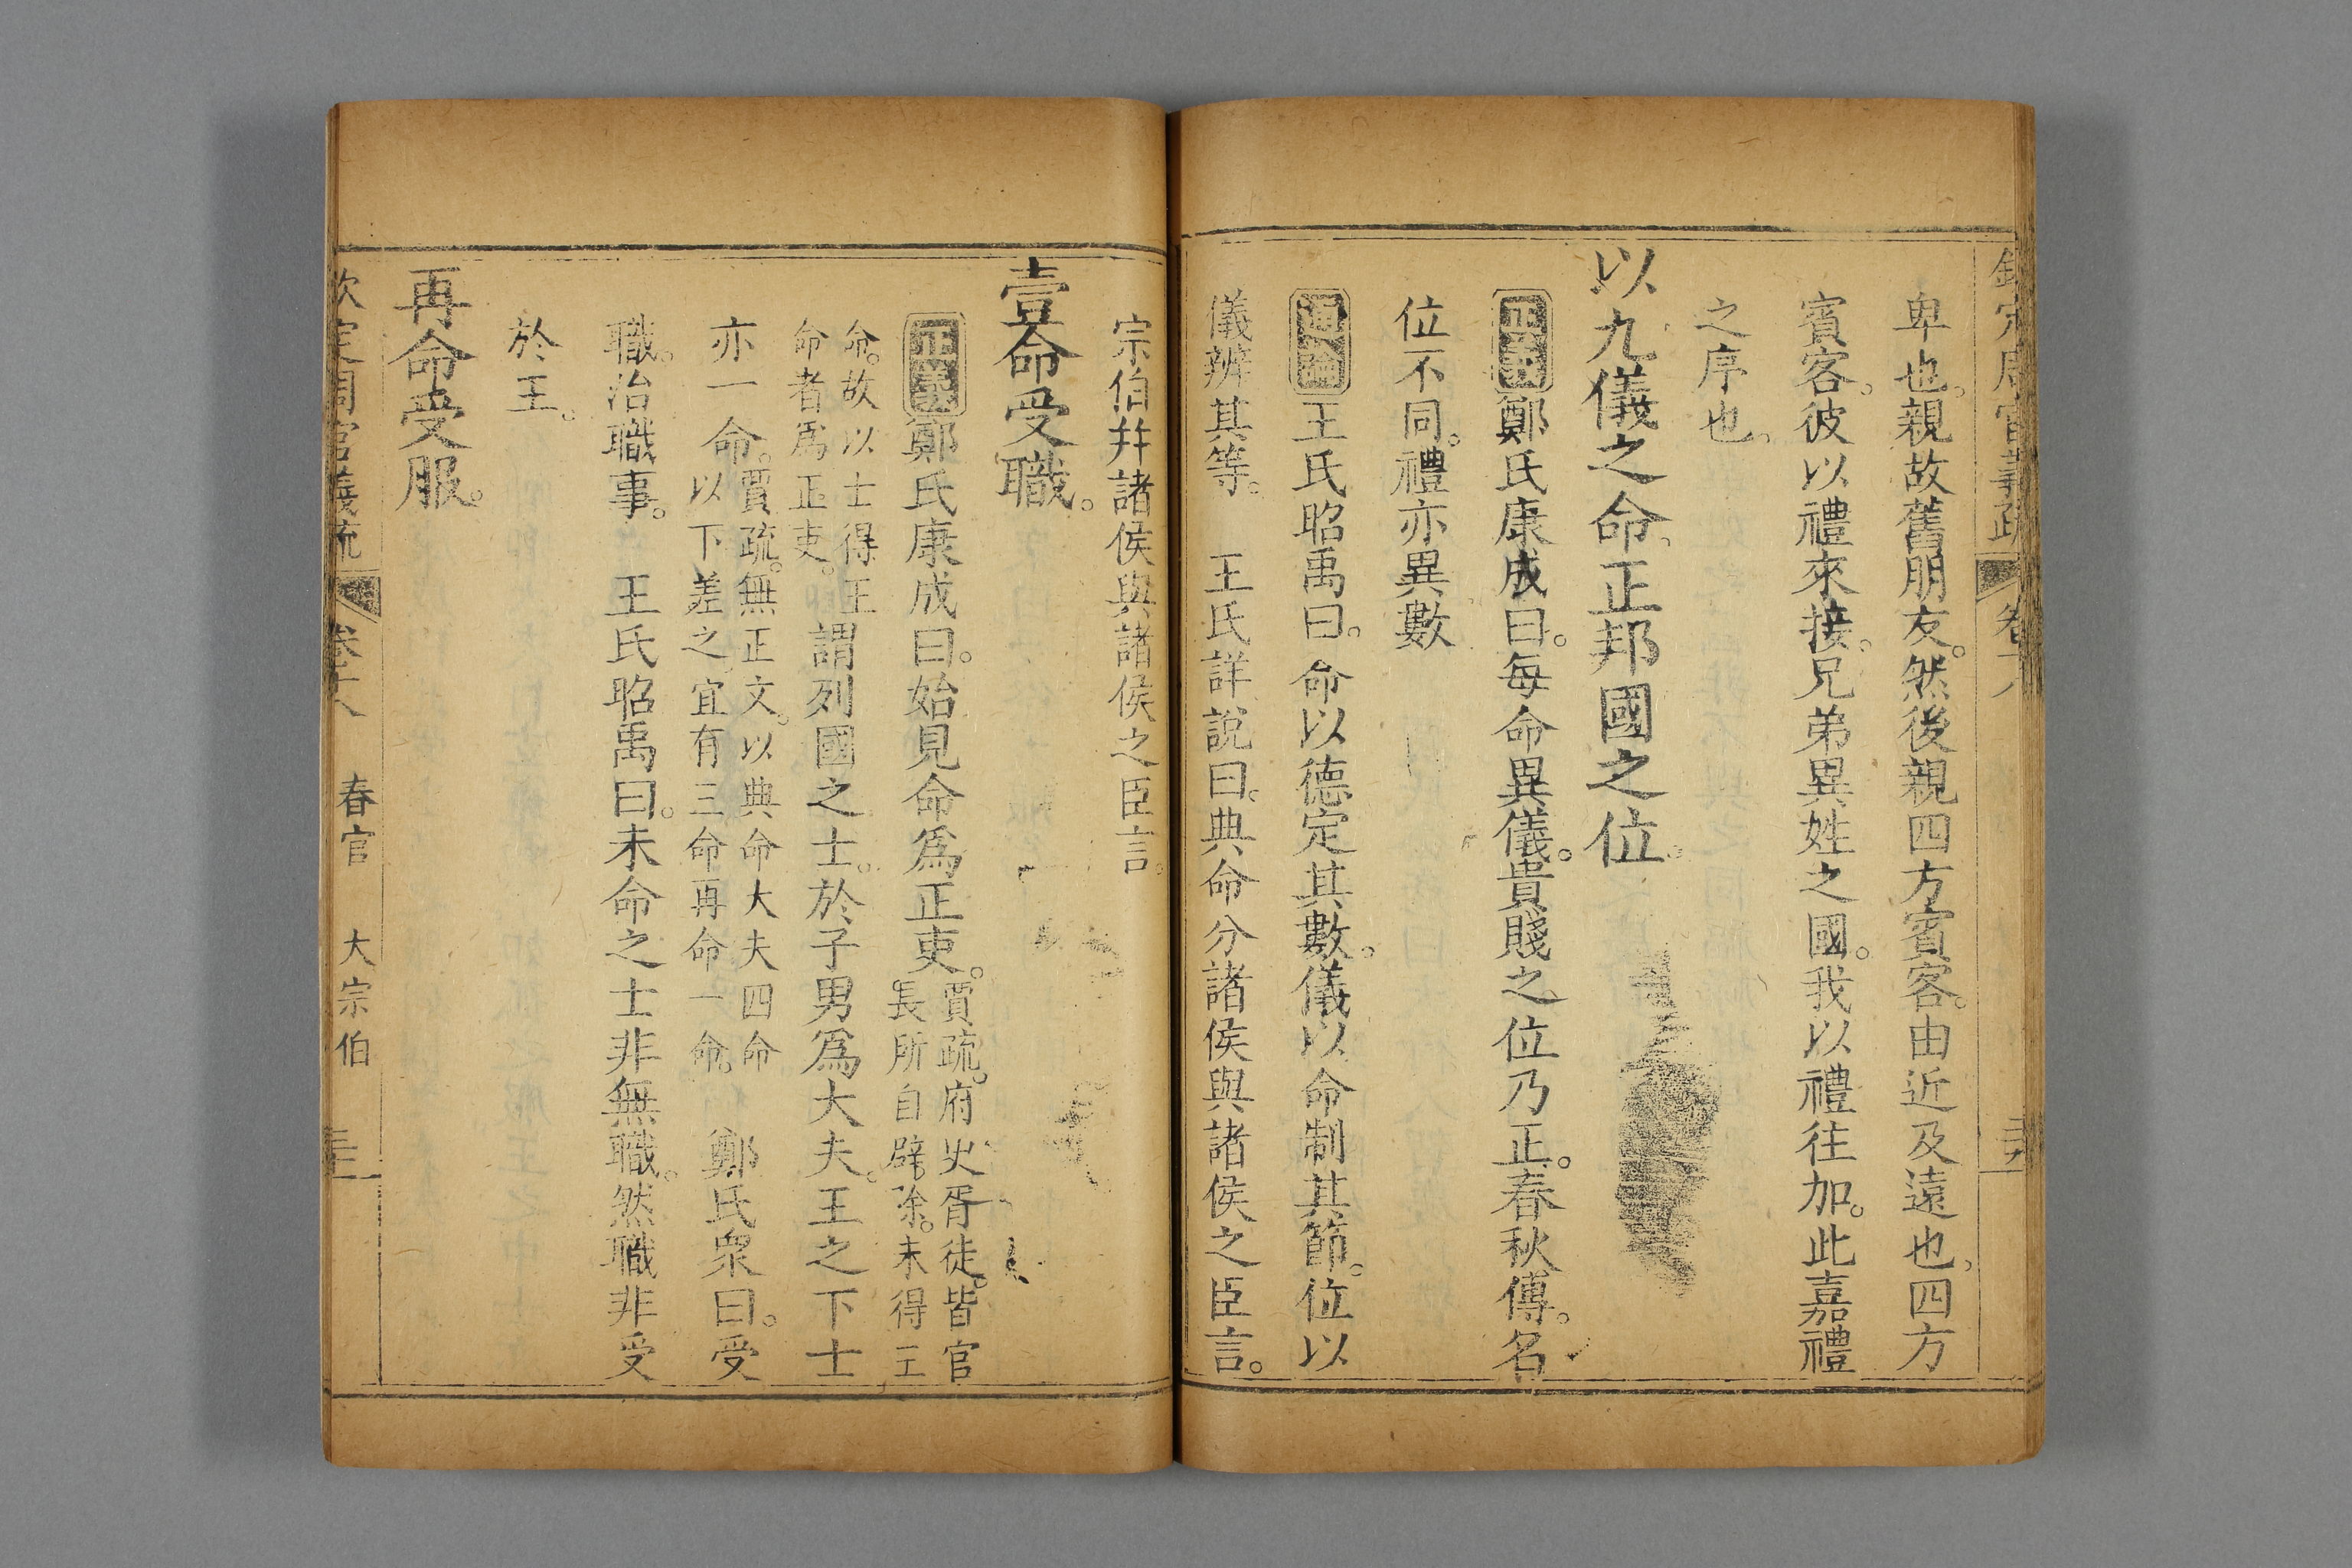 欽定周官義疏 卷十八
卑也。親故舊朋友。然後親四方賓客。由近及遠也。四方
賓客。彼以禮來接。兄弟異姓之國。我以禮往加。此嘉禮
之序也。
以九儀之命。正邦國之位。
正義鄭氏康成曰。每命異儀。貴賤之位乃正。春秋傳。名
位不同。禮亦異數
通論王氏昭禹曰。命以德定其數。儀以命制其節。位以
儀辨其等。 王氏詳說曰。典命分諸侯與諸侯之臣言。
宗伯幷諸侯與諸侯之臣言。
壹命受職。
正義鄭氏康成曰。始見命爲正吏。賈疏。府史胥徒。皆官
長所自辟除。未得王
命。故以士得王
命者爲正吏。謂列國之士。於子男爲大夫。王之下士
亦一命。賈疏。無正文。以典命大夫四命
以下差之。宜有三命再命一命。 鄭氏衆曰。受
職。治職事。 王氏昭禹曰。未命之士非無職。然職非受
於王。
再命受服。
欽定周官義疏 卷十八 春官 大宗伯